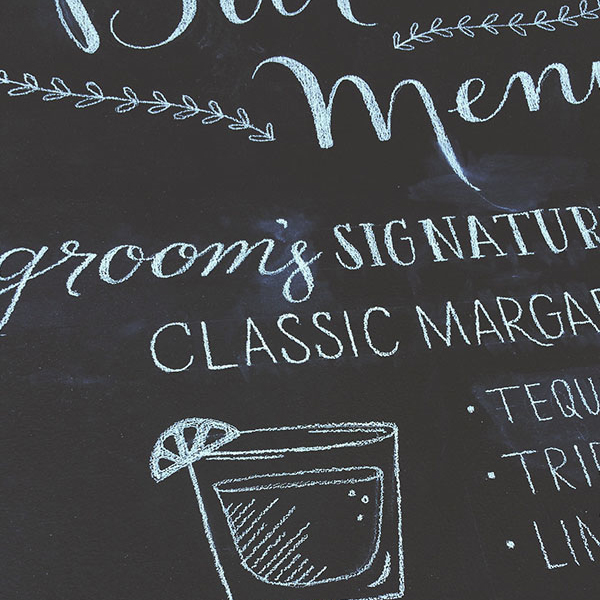 Bar
Menu
groom's SIGNATUR
CLASSIC MARGAR
• TEQU
• TRIP
• LIM